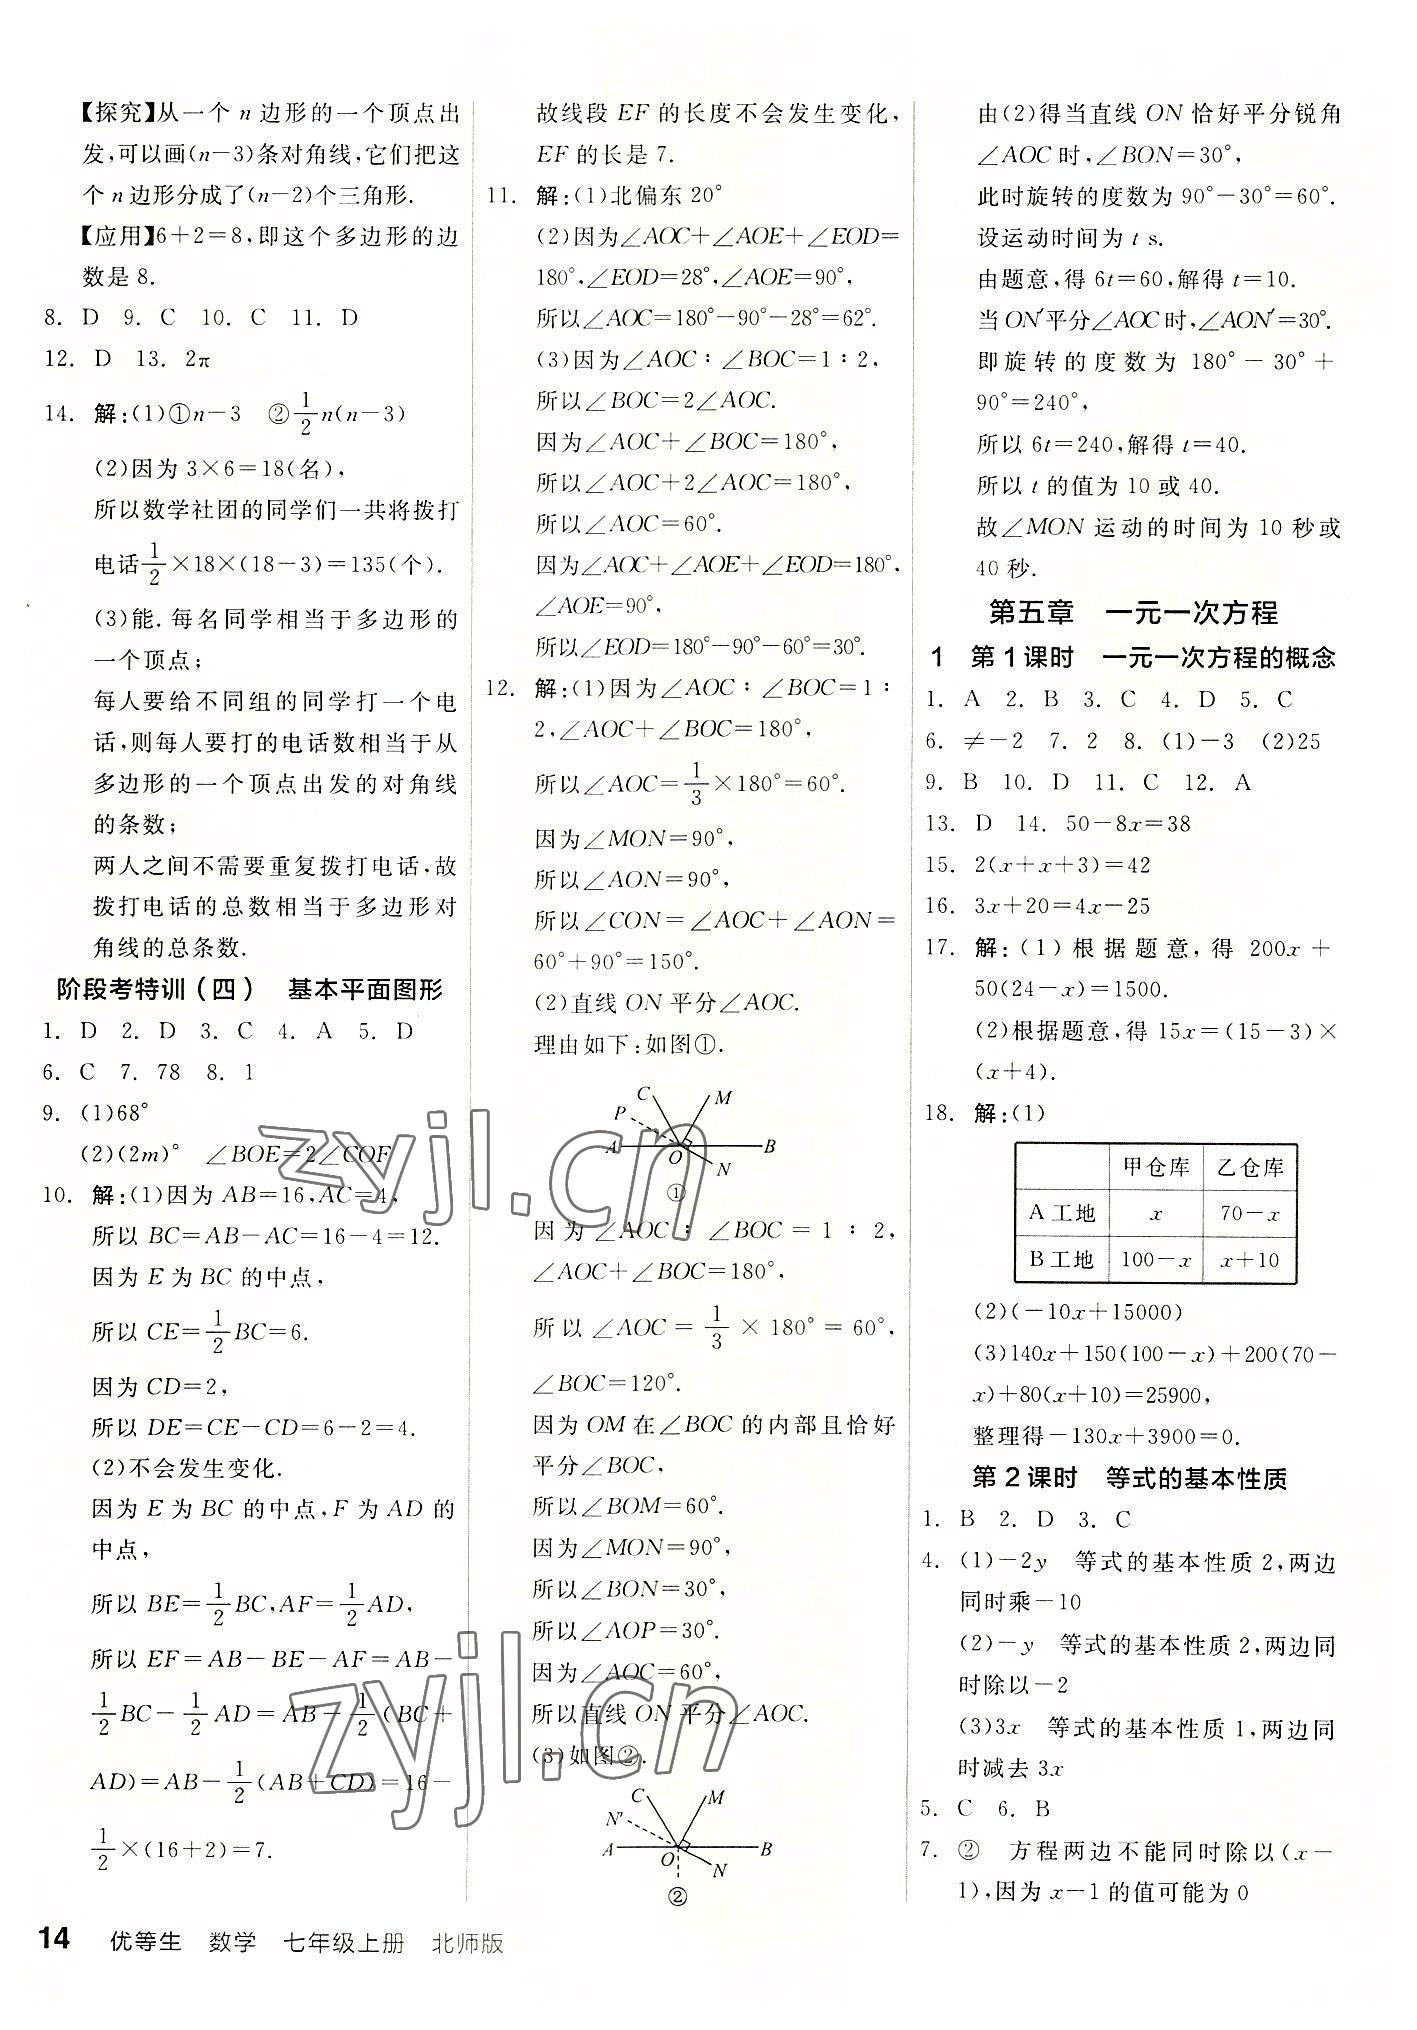 【探究】从一个 n 边形的一个顶点出
发,可以画(n－3)条对角线,它们把这
个 n 边形分成了(n－2)个三角形.
【应用】6＋2＝8,即这个多边形的边
数是 8.
8. D 9. C 10. C 11. D
12. D 13. 2π
14. 解:(1)①n－3 ②1/2n(n－3)
(2)因为 3×6＝18(名),
所以数学社团的同学们一共将拨打
电话1/2×18×(18－3)＝135(个).
(3)能. 每名同学相当于多边形的
一个顶点;
每人要给不同组的同学打一个电
话,则每人要打的电话数相当于从
多边形的一个顶点出发的对角线
的条数;
两人之间不需要重复拨打电话,故
拨打电话的总数相当于多边形对
角线的总条数.
阶段考特训(四) 基本平面图形
1. D 2. D 3. C 4. A 5. D
6. C 7. 78 8. 1
9. (1)68°
(2)(2m)° ∠BOE＝2∠COF
10. 解:(1)因为 AB＝16,AC＝4,
所以 BC＝AB－AC＝16－4＝12.
因为 E 为 BC 的中点,
所以 CE＝1/2BC＝6.
因为 CD＝2,
所以 DE＝CE－CD＝6－2＝4.
(2)不会发生变化.
因为 E 为 BC 的中点,F 为 AD 的
中点,
所以 BE＝1/2BC,AF＝1/2AD,
所以 EF＝AB－BE－AF＝AB－
1/2BC－1/2AD＝AB－1/2(BC＋
AD)＝AB－1/2(AB＋CD)＝16－
1/2×(16＋2)＝7.
故线段 EF 的长度不会发生变化,
EF 的长是 7.
11. 解:(1)北偏东 20°
(2)因为∠AOC＋∠AOE＋∠EOD＝
180°,∠EOD＝28°,∠AOE＝90°,
所以∠AOC＝180°－90°－28°＝62°.
(3)因为∠AOC∶∠BOC＝1∶2,
所以∠BOC＝2∠AOC.
因为∠AOC＋∠BOC＝180°,
所以∠AOC＋2∠AOC＝180°,
所以∠AOC＝60°.
因为∠AOC＋∠AOE＋∠EOD＝180°,
∠AOE＝90°,
所以∠EOD＝180°－90°－60°＝30°.
12. 解:(1)因为∠AOC∶∠BOC＝1∶
2,∠AOC＋∠BOC＝180°,
所以∠AOC＝1/3×180°＝60°.
因为∠MON＝90°,
所以∠AON＝90°,
所以∠CON＝∠AOC＋∠AON＝
60°＋90°＝150°.
(2)直线 ON 平分∠AOC.
理由如下:如图①.
C M
P
A O B
N
①
因为∠AOC∶∠BOC＝1∶2,
∠AOC＋∠BOC＝180°,
所以∠AOC＝1/3×180°＝60°,
∠BOC＝120°.
因为 OM 在∠BOC 的内部且恰好
平分∠BOC,
所以∠BOM＝60°.
因为∠MON＝90°,
所以∠BON＝30°,
所以∠AOP＝30°.
因为∠AOC＝60°,
所以直线 ON 平分∠AOC.
(3)如图②.
C M
N′
A O B
N
②
由(2)得当直线 ON 恰好平分锐角
∠AOC 时,∠BON＝30°,
此时旋转的度数为 90°－30°＝60°.
设运动时间为 t s.
由题意,得 6t＝60,解得 t＝10.
当 ON′平分∠AOC 时,∠AON′＝30°.
即旋转的度数为 180°－30°＋
90°＝240°,
所以 6t＝240,解得 t＝40.
所以 t 的值为 10 或 40.
故∠MON 运动的时间为 10 秒或
40 秒.
第五章 一元一次方程
1 第 1 课时 一元一次方程的概念
1. A 2. B 3. C 4. D 5. C
6. ≠－2 7. 2 8. (1)－3 (2)25
9. B 10. D 11. C 12. A
13. D 14. 50－8x＝38
15. 2(x＋x＋3)＝42
16. 3x＋20＝4x－25
17. 解:(1)根据题意,得 200x＋
50(24－x)＝1500.
(2)根据题意,得 15x＝(15－3)×
(x＋4).
18. 解:(1)
甲仓库 乙仓库
A 工地 x 70－x
B 工地 100－x x＋10
(2)(－10x＋15000)
(3)140x＋150(100－x)＋200(70－
x)＋80(x＋10)＝25900,
整理得－130x＋3900＝0.
第 2 课时 等式的基本性质
1. B 2. D 3. C
4. (1)－2y 等式的基本性质 2,两边
同时乘－10
(2)－y 等式的基本性质 2,两边同
时除以－2
(3)3x 等式的基本性质 1,两边同
时减去 3x
5. C 6. B
7. ② 方程两边不能同时除以(x－
1),因为 x－1 的值可能为 0
14 优等生 数学 七年级上册 北师版
zyjl.cn
zyjl.cn